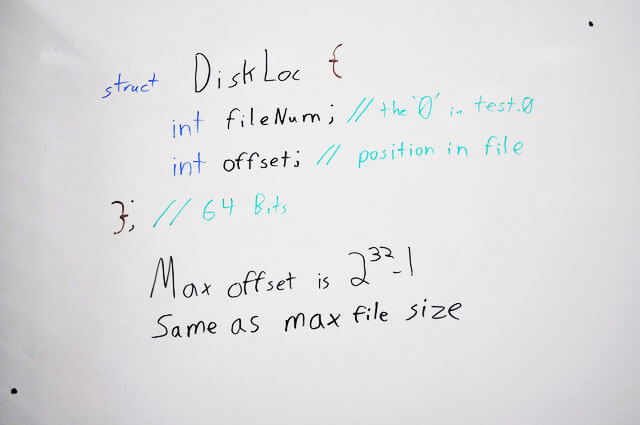 struct DiskLoc {
int fileNum; // the '0' in test.0
int offset; // position in file
}; // 64 Bits
Max offset is 2^32-1
Same as max file size